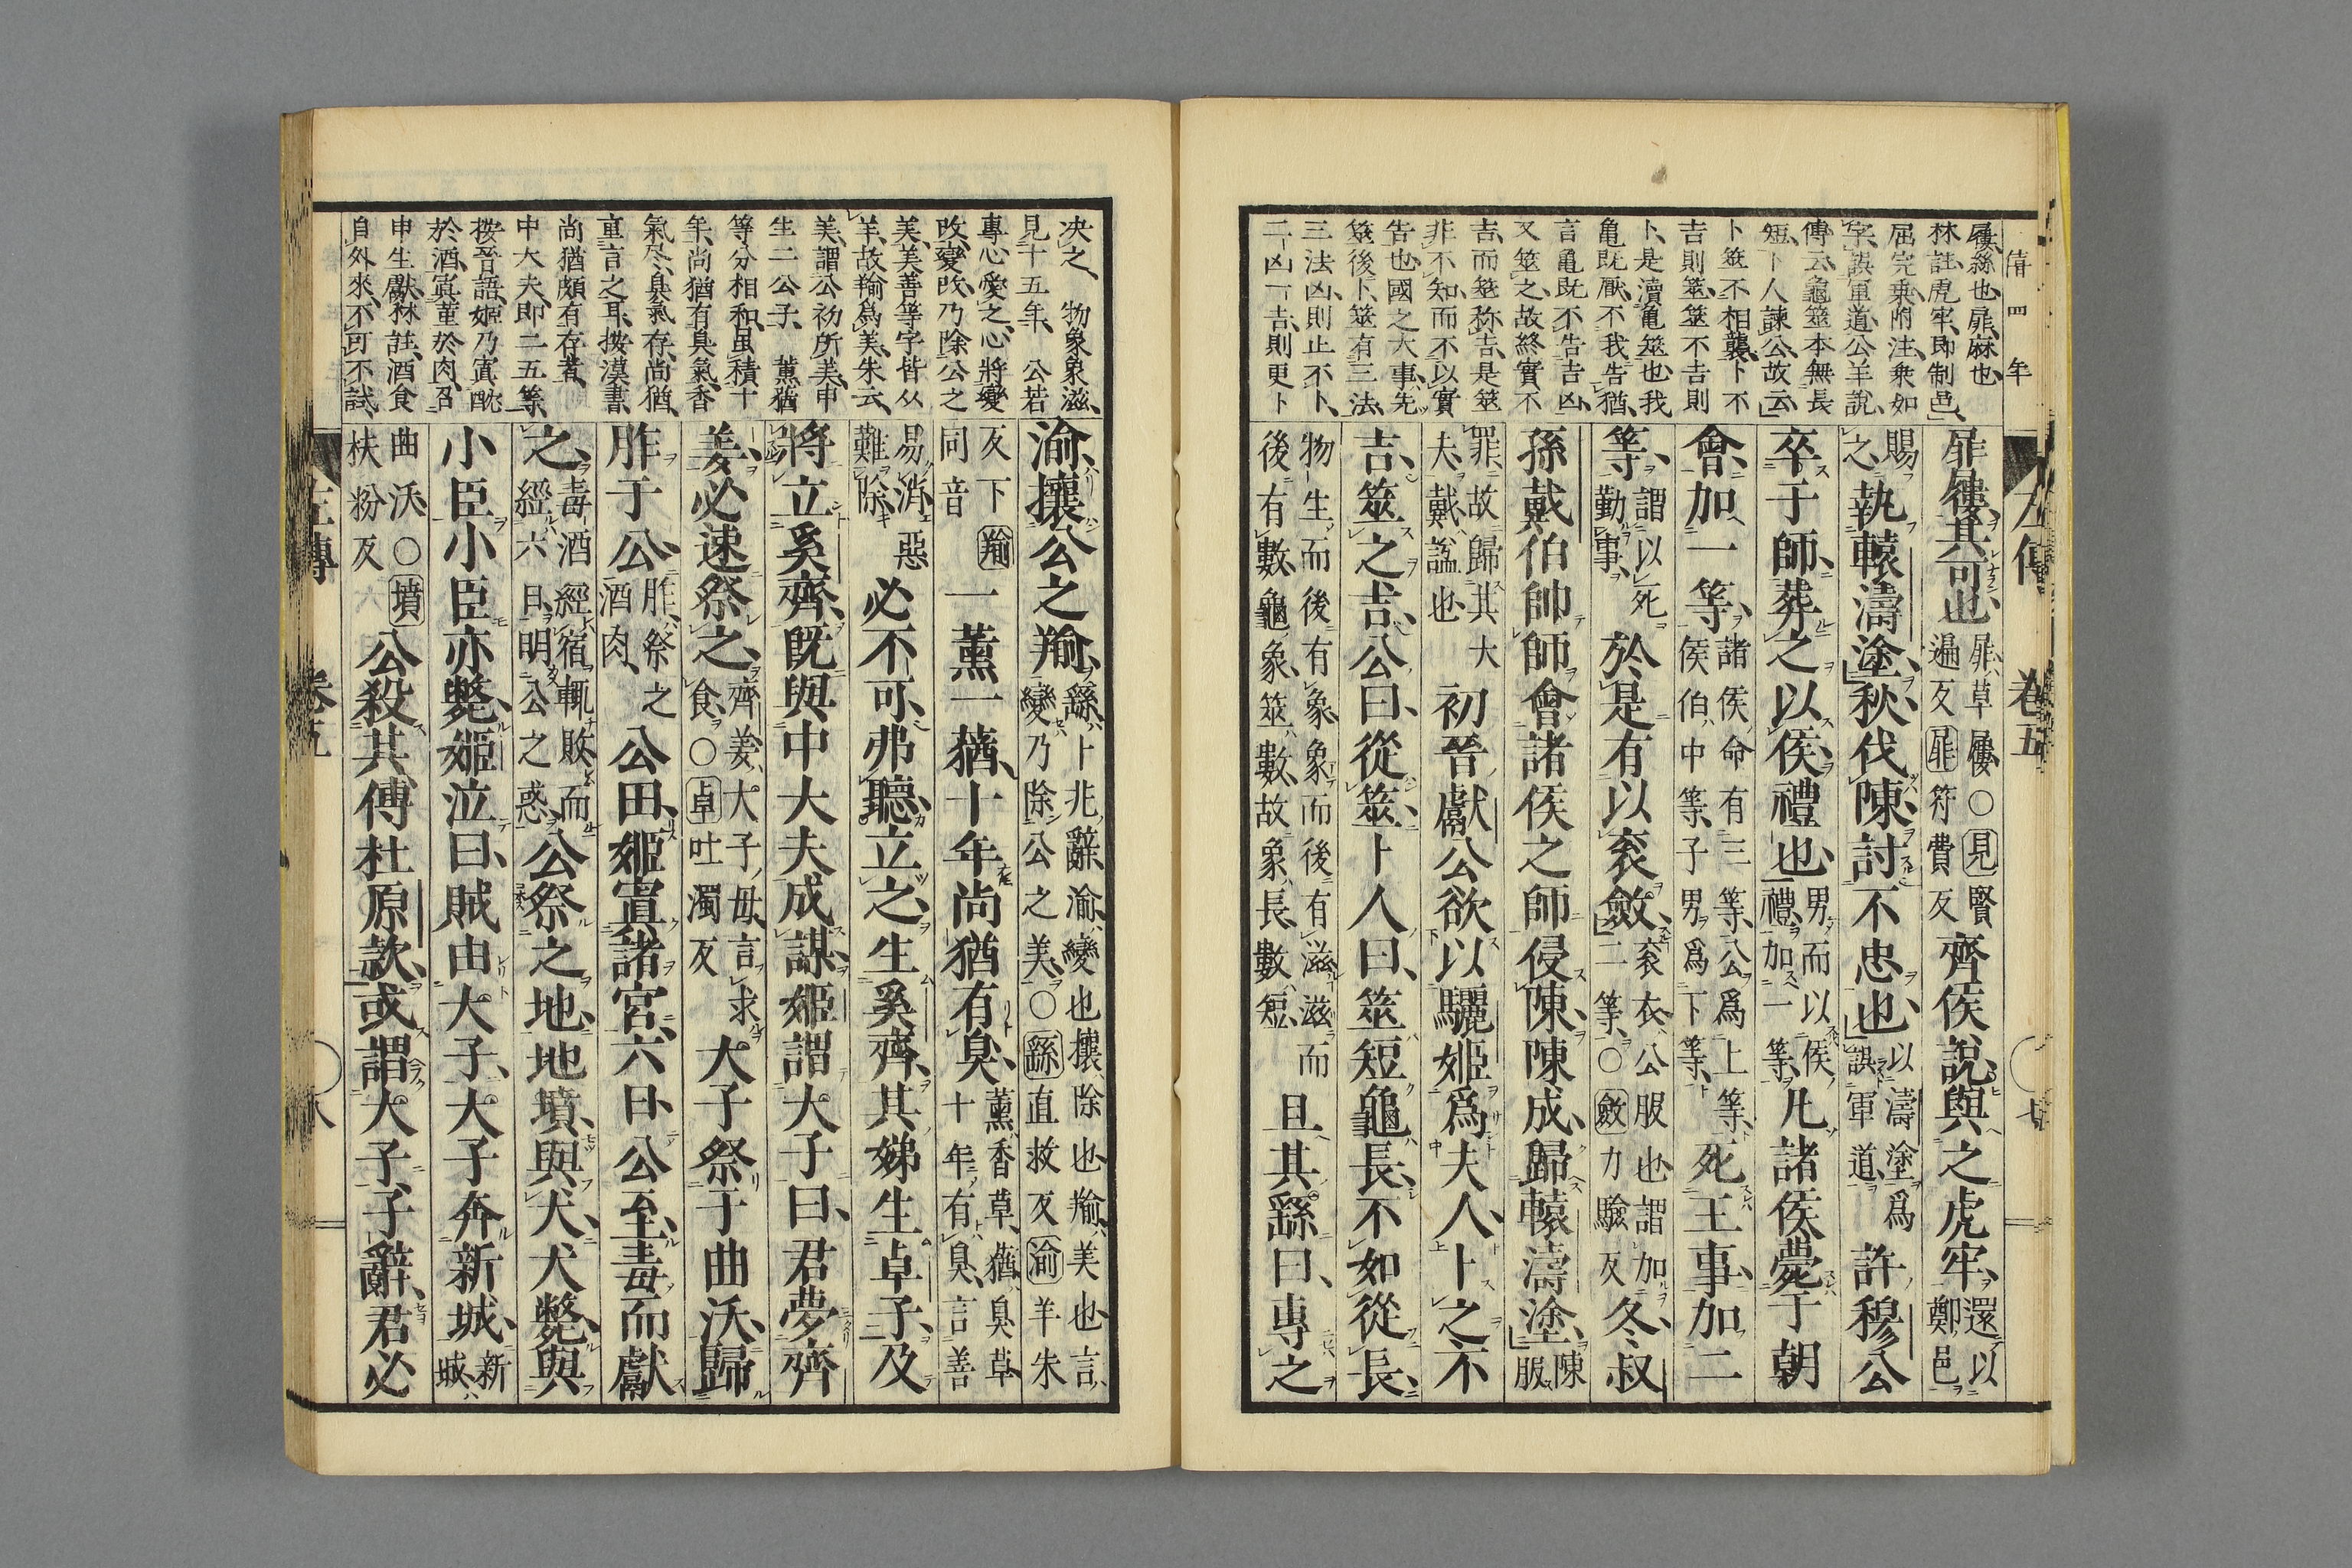 僖四年
屨絲也、屝、麻也、
林註、虎牢、即制邑、
屈完、乗附注、衆如
字、誤軍道、公羊說、
傳云、龜筮本無長
短、卜人諫公故云、
卜筮不相襲、卜不
吉則筮、筮不吉則
卜、是瀆亀筮也、我
亀既厭、不我告猶、
言亀既不告吉凶、
又筮之、故終實不
吉、而筮称吉、是筮
非不知、而不以實
告也、國之大事、先
筮後卜、筮有三法、
三法凶則止不卜、
二凶一吉、則更卜
屝屨、其可也、屝草屨○見賢遍反屝符費反齊侯說、與之虎牢、還以鄭邑
賜之、執轅濤塗、秋、伐陳、討不忠也、以濤塗爲誤軍道、許穆公
卒于師、葬之以侯、禮也、男而以侯禮、加一等、凡諸侯薨于朝
會、加一等、諸侯命有三等、公爲上等、侯伯中等、子男爲下等、死王事、加二
等、謂以死勤事、於是有以衮斂、衮衣、公服也、謂加二等、○斂力驗反冬、叔
孫戴伯帥師會諸侯之師侵陳、陳成、歸轅濤塗、陳服
罪、故歸其大夫、戴謚也初晉獻公欲以驪姬爲夫人、卜之不
吉、筮之吉、公曰、從筮、卜人曰、筮短龜長、不如從長、
物生而後有象、象而後有滋、滋而後有數、龜象、筮數、故象長數短、且其繇曰、專之
左傳 卷五 七
決之、物象象滋、
見十五年、公若
專心愛之、心將變
改、變改、乃除公之
美、美善等字皆从
羊、故羭爲美、朱云、
美、謂公初所美、申
生二公子、薰蕕
等分相和、虽積十
年、尚猶有臭氣、香
氣尽、臭氣存、尚猶、
重言之耳、按漢書、
尚猶頗有存者、
中大夫、即二五等、
按晉語、姬乃寘酖
於酒、寘菫於肉、召
申生獻、林註、酒食
自外來、不可不試、
渝、攘公之羭、繇卜兆辭、渝變也、攘除也、羭美也、言變乃除公之美、○繇直救反渝羊朱
反下同音羭一薰一蕕、十年尚猶有臭、薰香草、蕕臭草、十年有臭、言善
易消惡難除必不可、弗聽、立之、生奚齊、其娣生卓子、及
將立奚齊、旣與中大夫成謀、姬謂大子曰、君夢齊
姜、必速祭之、齊姜大子母、言求食、○卓吐濁反大子祭于曲沃、歸
胙于公、胙祭之酒肉、公田、姬寘諸宮、六日、公至、毒而獻
之、毒酒經宿輒敗、而經六日、明公之惑、公祭之地、地墳、與犬、犬斃、與
小臣、小臣亦斃、姬泣曰、賊由大子、大子奔新城、新城、
曲沃○墳扶粉反公殺其傅杜原款、或謂大子、子辭、君必
左傳 卷五 八